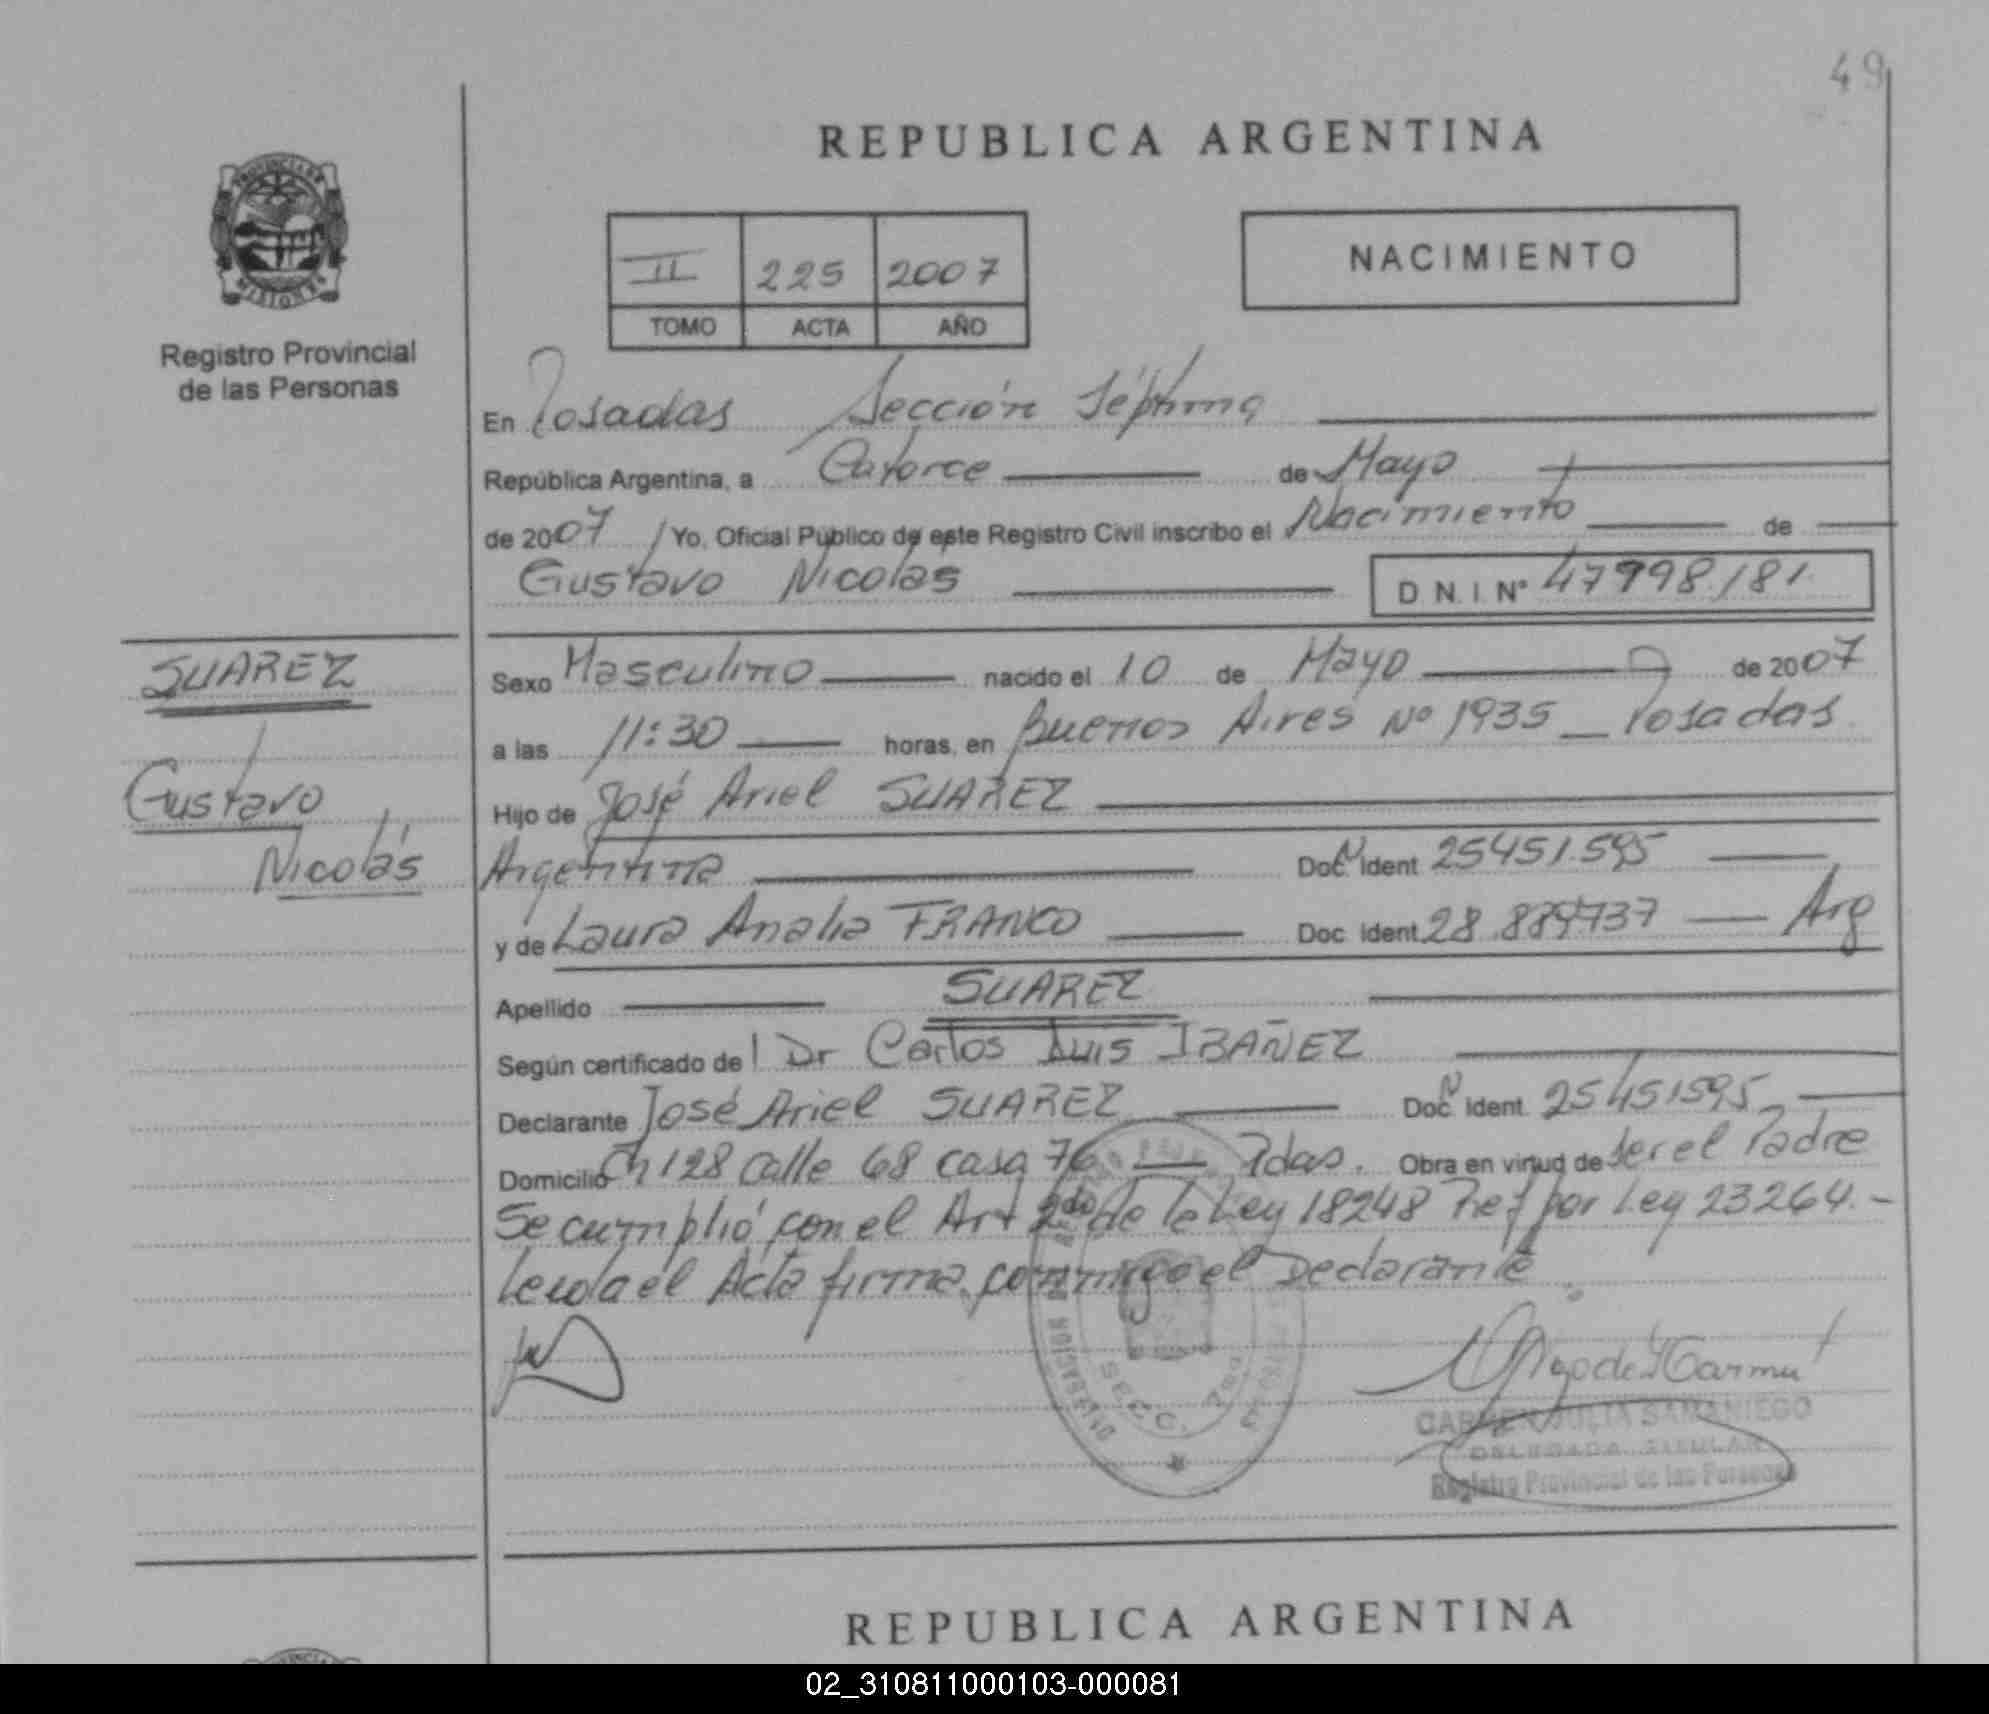 49
REPUBLICA ARGENTINA
PROVINCIA DE
MISIONES
Registro Provincial
de las Personas
II 225 2007
TOMO ACTA AÑO
NACIMIENTO
En Posadas Sección Séptima
República Argentina, a Catorce de Mayo
de 2007 Yo, Oficial Público de este Registro Civil inscribo el Nacimiento de
Gustavo Nicolás D.N.I. Nº 47998181
SUAREZ
Gustavo
Nicolás
Sexo Masculino nacido el 10 de Mayo de 2007
a las 11:30 horas, en Buenos Aires Nº 1935 _ Posadas
Hijo de José Ariel SUAREZ
Argentina Doc. Ident 25451.595
y de Laura Analia FRANCO Doc Ident 28.889737 Arg
Apellido SUAREZ
Según certificado de Dr Carlos Luis IBAÑEZ
Declarante José Ariel SUAREZ Doc Ident 25451595
Domicilio Ch 128 Calle 68 casa 76 Pdas. Obra en virtud de ser el Padre
Se cumplió con el Art 2do de le Ley 18248 Ref por Ley 23264.-
Leida el Acta firma conmigo el Declarante
CARMEN JULIA SAMANIEGO
DELEGADA TITULAR
Registro Provincial de las Personas
REPUBLICA ARGENTINA
02_310811000103-000081